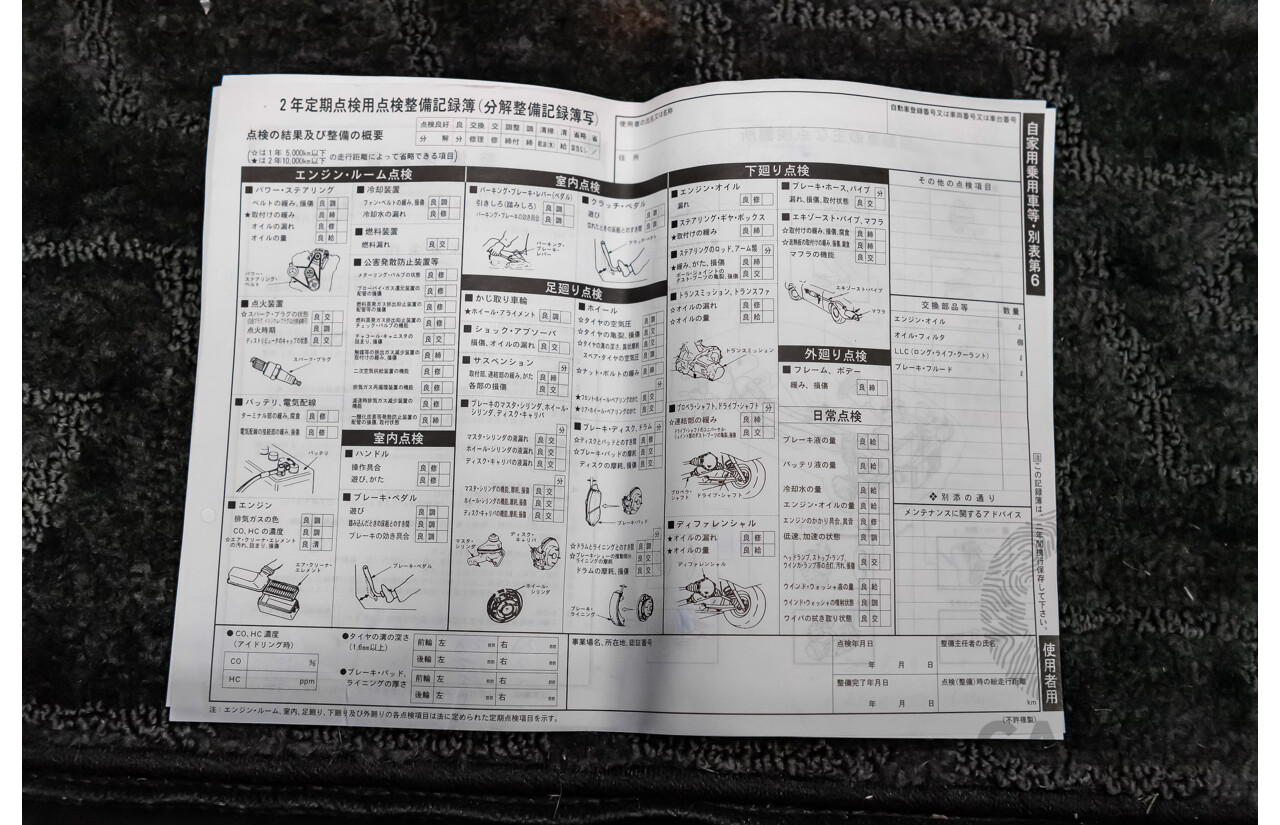 2年定期点検用点検整備記録簿(分解整備記録簿写)
点検の結果及び整備の概要
(☆は1年 5,000km以下
★は2年10,000km以下 の走行距離によって省略できる項目)
点検良好 良 交換 交 調整 調 清掃 清 省略 省
分解 分 修理 修 締付 締 給油(水) 給 該当なし ／
使用者の氏名又は名称
住所
自動車登録番号又は車両番号又は車台番号
自家用乗用車等・別表第6
エンジン・ルーム点検
■パワー・ステアリング
ベルトの緩み、損傷 良 調
★取付けの緩み 良 締
オイルの漏れ 良 修
オイルの量 良 給
パワー・ステアリング・ベルト
■点火装置
☆スパーク・プラグの状態 良 交
点火時期 良 調
ディストリビュータのキャップの状態 良 交
スパーク・プラグ
■バッテリ、電気配線
ターミナル部の緩み、腐食 良 修
電気配線の接続部の緩み、損傷 良 修
バッテリ
■エンジン
排気ガスの色 良 調
CO、HCの濃度 良 調
☆エア・クリーナ・エレメントの汚れ、詰まり、損傷 良 清
エア・クリーナ・エレメント
■冷却装置
ファン・ベルトの緩み、損傷 良 調
冷却水の漏れ 良 修
■燃料装置
燃料漏れ 良 交
■公害発散防止装置等
メターリング・バルブの状態 良 修
ブローバイ・ガス還元装置の配管の損傷 良 修
燃料蒸発ガス排出抑止装置の配管等の損傷 良 修
燃料蒸発ガス排出抑止装置のチェック・バルブの機能 良 修
チャコール・キャニスタの詰まり、損傷 良 修
触媒等の排出ガス減少装置の取付けの緩み、損傷 良 締
二次空気供給装置の機能 良 修
排気ガス再循環装置の機能 良 修
減速時排気ガス減少装置の機能 良 修
一酸化炭素等発散防止装置の配管の損傷、取付状態 良 締
室内点検
■ハンドル
操作具合 良 修
遊び、がた 良 修
■ブレーキ・ペダル
遊び 良 調
踏み込んだときの床板とのすき間 良 調
ブレーキの効き具合 良 調
ブレーキ・ペダル
室内点検
■パーキング・ブレーキ・レバー(ペダル)
引きしろ(踏みしろ) 良 調
パーキング・ブレーキの効き具合 良 調
パーキング・ブレーキ・レバー
■クラッチ・ペダル
遊び 良 調
切れたときの床板とのすき間 良 調
クラッチ・ペダル
足廻り点検
■かじ取り車輪
★ホイール・アライメント 良 調
■ショック・アブソーバ
損傷、オイルの漏れ 良 交
■サスペンション 分
取付部、連結部の緩み、がた 良 締
各部の損傷 良 交
■ブレーキのマスタ・シリンダ、ホイール・シリンダ、ディスク・キャリパ
マスタ・シリンダの液漏れ 良 交
ホイール・シリンダの液漏れ 良 交
ディスク・キャリパの液漏れ 良 交
分
マスタ・シリンダの機能、摩耗、損傷 良 交
ホイール・シリンダの機能、摩耗、損傷 良 交
ディスク・キャリパの機能、摩耗、損傷 良 交
マスタ・シリンダ
ディスク・キャリパ
ホイール・シリンダ
■ホイール
☆タイヤの空気圧 良 調
☆タイヤの亀裂、損傷 良 交
☆タイヤの溝の深さ、異状摩耗 良 交
スペア・タイヤの空気圧 良 調
☆ナット・ボルトの緩み 良 締
分
★フロントホイールベアリングのがた 良 締
★リア・ホイールベアリングのがた 良 締
■ブレーキ・ディスク、ドラム 分
☆ディスクとパッドとのすき間 良 修
☆ブレーキ・パッドの摩耗 良 交
ディスクの摩耗、損傷 良 交
ブレーキ・パッド
分
☆ドラムとライニングとのすき間 良 調
☆ブレーキ・シューの摺動部分、ライニングの摩耗 良 交
ドラムの摩耗、損傷 良 交
ブレーキ・ライニング
下廻り点検
■エンジン・オイル
漏れ 良 修
■ステアリング・ギヤ・ボックス
★取付けの緩み 良 締
■ステアリングのロッド、アーム類 分
★緩み、がた、損傷 良 締
ボール・ジョイントのダスト・ブーツの亀裂、損傷 良 交
■トランスミッション、トランスファ
☆オイルの漏れ 良 修
☆オイルの量 良 給
トランスミッション
■プロペラ・シャフト、ドライブ・シャフト 分
☆連結部の緩み 良 締
ドライブ・シャフトのユニバーサル・ジョイント部のダスト・ブーツの亀裂、損傷 良 交
プロペラ・シャフト
ドライブ・シャフト
■ディファレンシャル
★オイルの漏れ 良 修
★オイルの量 良 給
ディファレンシャル
■ブレーキ・ホース、パイプ 分
漏れ、損傷、取付状態 良 交
■エキゾースト・パイプ、マフラ
☆取付けの緩み、損傷、腐食 良 締
☆遮熱板の取付けの緩み、損傷、腐食 良 締
マフラの機能 良 交
エキゾースト・パイプ
マフラ
外廻り点検
■フレーム、ボデー
緩み、損傷 良 締
日常点検
ブレーキ液の量 良 給
バッテリ液の量 良 給
冷却水の量 良 給
エンジン・オイルの量 良 給
エンジンのかかり具合、異音 良 修
低速、加速の状態 良 調
ヘッドランプ、ストップ・ランプ、ウインカ・ランプ等の点灯、汚れ、損傷 良 交
ウインド・ウォッシャ液の量 良 給
ウインド・ウォッシャの噴射状態 良 調
ワイパの拭き取り状態 良 交
その他の点検項目
交換部品等 数量
エンジン・オイル ℓ
オイル・フィルタ 個
LLC(ロング・ライフ・クーラント) ℓ
ブレーキ・フルード ℓ
❖別添の通り
メンテナンスに関するアドバイス
使用者用
●CO、HC濃度
(アイドリング時)
CO %
HC ppm
●タイヤの溝の深さ
(1.6mm以上)
前輪 左 mm 右 mm
後輪 左 mm 右 mm
●ブレーキ・パッド、ライニングの厚さ
前輪 左 mm 右 mm
後輪 左 mm 右 mm
事業場名、所在地、認証番号
点検年月日
年 月 日
整備主任者の氏名
整備完了年月日
年 月 日
点検(整備)時の総走行距離
km
注：エンジン・ルーム、室内、足廻り、下廻り及び外廻りの各点検項目は法に定められた定期点検項目を示す。
(不許複製)